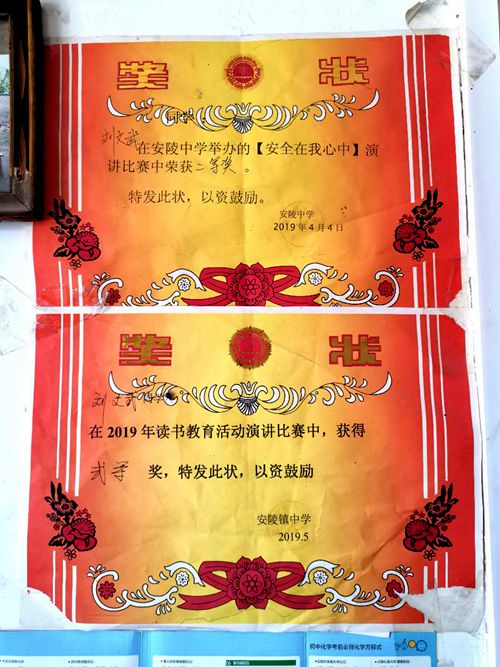 奖 状
刘文武
同学
在安陵中学举办的【安全在我心中】演
讲比赛中荣获二等奖。
特发此状，以资鼓励。
安陵中学
2019年4月4日
奖 状
刘文武同学
在 2019 年读书教育活动演讲比赛中，获得
贰等 奖，特发此状，以资鼓励
安陵镇中学
2019.5
初中化学考前必背化学方程式